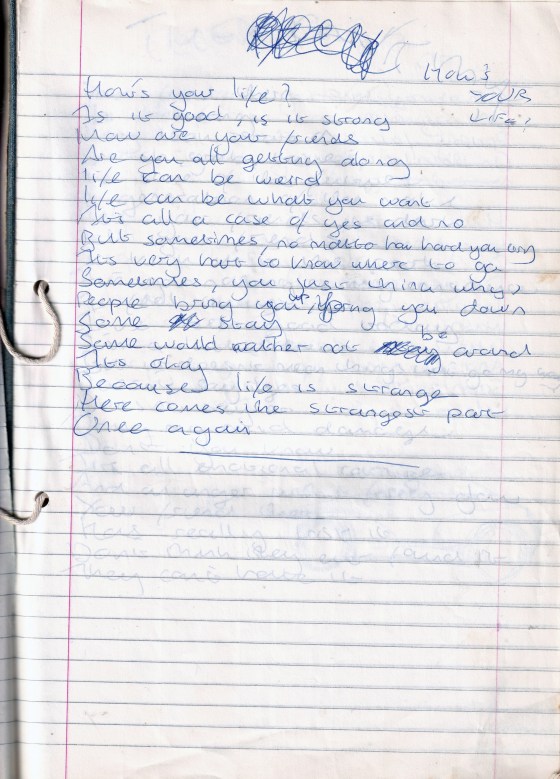 How's
YOUR
LIFE?
How's your life?
Is it good, is it strong
How are your friends
Are you all getting along.
Life can be weird
Life can be what you want
It's all a case of yes and no
But sometimes no matter how hard you try
It's very hard to know where to go
Sometimes, you just think why,
People bring you up, bring you down
Some stay
Some would rather not be around
It's okay
Because life is strange
Here comes the strangest part
Once again